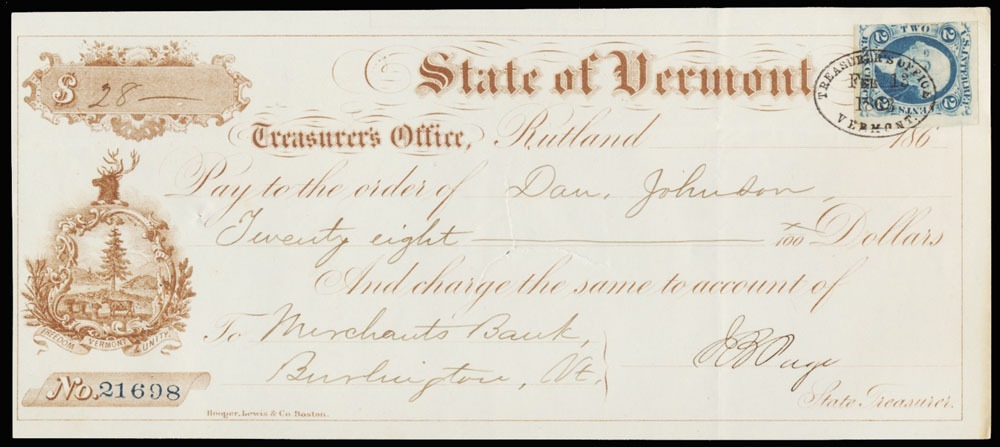 $ 28 —
State of Vermont
U.S. INTER. REV.
TWO
2 2
2 2
CENTS
TREASURER'S OFFICE
FEB
VERMONT.
Treasurer's Office, Rutland 186
Pay to the order of Dan. Johnson,
Twenty eight — x/100 Dollars
And charge the same to account of
To Merchants Bank,
Burlington, Vt.
J B Page
State Treasurer.
FREEDOM VERMONT & UNITY
No. 21698
Hooper, Lewis & Co. Boston.